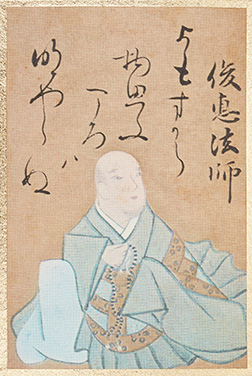 俊惠法師
よもすから
物思ふ
ころハ
明やらぬ